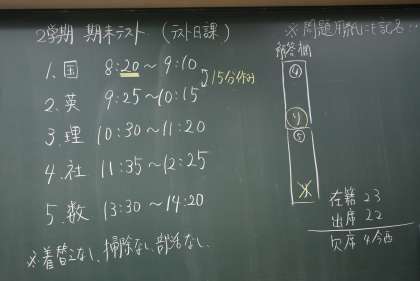 2学期 期末テスト (テスト日課)
1. 国 8:20～9:10
15分休み
2. 英 9:25～10:15
3. 理 10:30～11:20
4. 社 11:35～12:25
5. 数 13:30～14:20
※着替えなし、掃除なし、部活なし、
※問題用紙にも記名
解答欄
④
り
⑤
在籍 23
出席 22
欠席